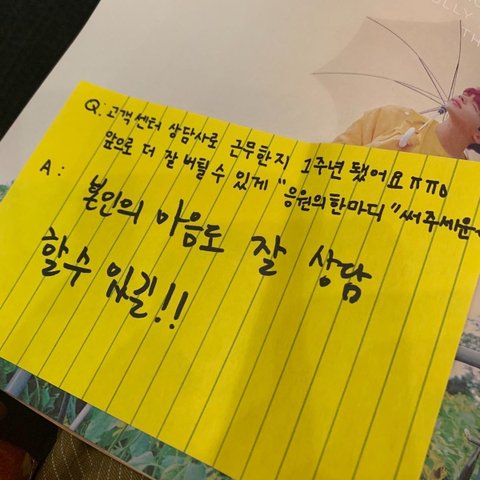 ULLY
TH
Q: 고객센터 상담사로 근무한지 1주년 됐어요 ㅠㅠ
앞으로 더 잘 버틸 수 있게 "응원의 한마디" 써주세요
A:
본인의 마음도 잘 상담
할 수 있길!!